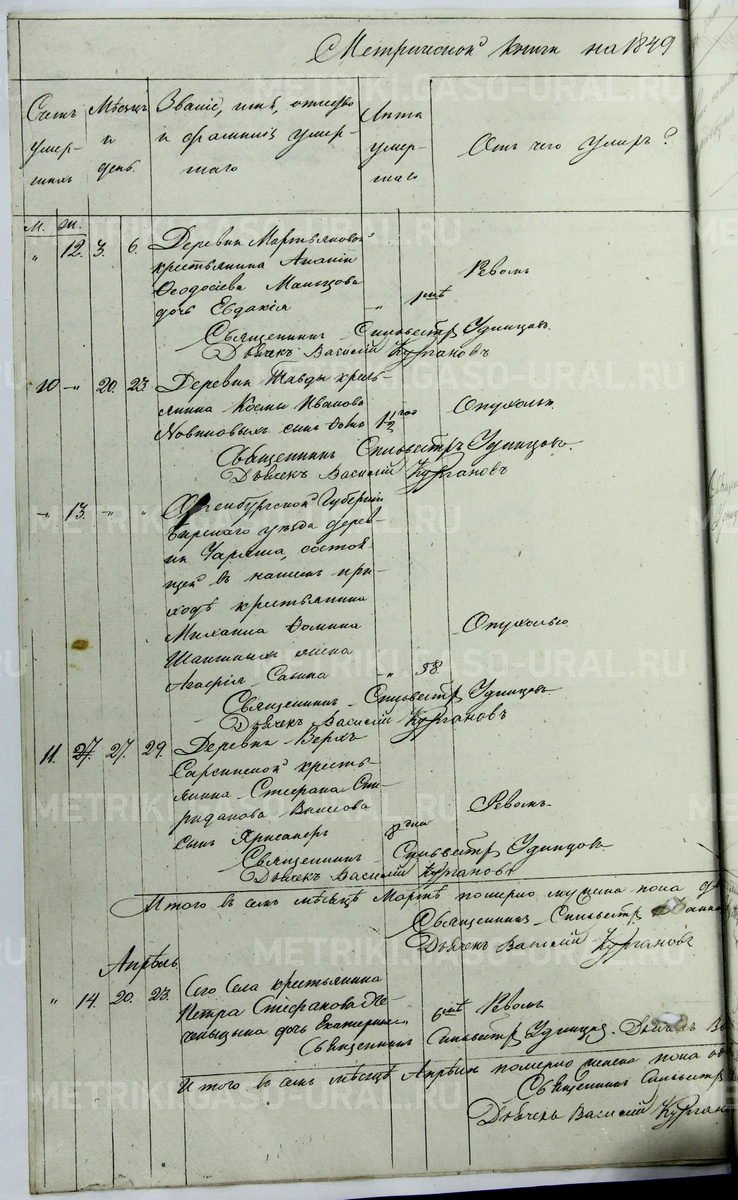 Метрической книги на 1849
Счетъ умер-шихъ
Мѣсяцъ и день
Званіе, имя, отчество и фамилія умер-шаго
Лѣта умер-шаго
Отъ чего умеръ?
М. Ж.
" 12. 3. 6. Деревни Мартьяновой
крестьянина Ананіи
Ѳеодосіева
дочь Евдокія " 1 Ревомъ
Священникъ Сильвестръ Удинцовъ.
Дьячекъ Василій Кургановъ
10 " 20. 23. Деревни Тавды кресть
янина Космы Иванова
сынъ 1 1/2 Опухолью.
Священникъ Сильвестръ Удинцовъ.
Дьячекъ Василій Кургановъ
" 13. " " Оренбургской Губерніи
Бирскаго уѣзда дерев
ни состоя
щей въ нашемъ при
ходѣ крестьянина
Михаила Ѳомина
жена Опухолью.
Агафія Савина " 58.
Священникъ Сильвестръ Удинцовъ
Дьячекъ Василій Кургановъ
11. 27. 27. 29. Деревни Верхъ
Сарсинской кресть
янина Стефана Спи
ридонова
сынъ 8 дня Ревомъ
Священникъ Сильвестръ Удинцовъ
Дьячекъ Василій Кургановъ
Итого въ семъ мѣсяцѣ Мартѣ померло мужеска пола
Священникъ Сильвестръ
Дьячекъ Василій Кургановъ
Апрѣль
" 14. 20. 23. Сего Села крестьянина
Петра Стефанова
дочь Екатерина 6 Ревомъ
Священникъ Сильвестръ Удинцовъ. Дьячекъ
Итого въ семъ мѣсяцѣ Апрѣлѣ померло женска пола
Священникъ Сильвестръ
Дьячекъ Василій Курган
METRIKI.GASO-URAL.RU